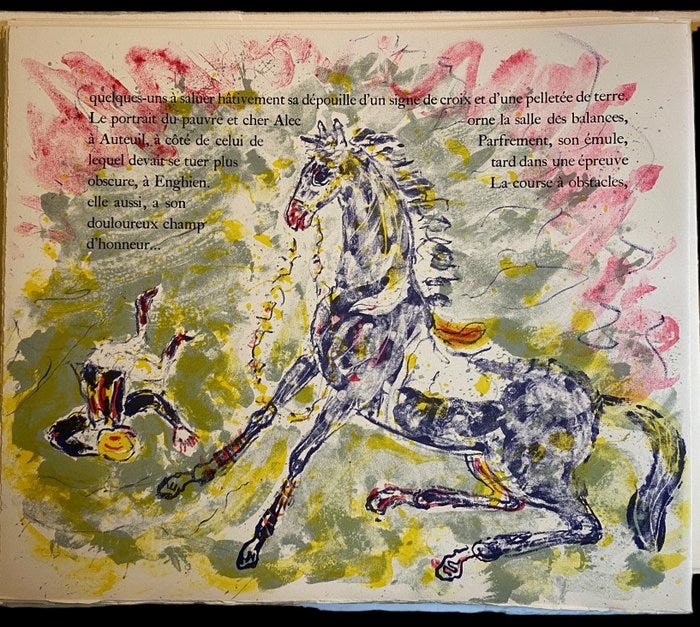 quelques-uns à saluer hâtivement sa dépouille d'un signe de croix et d'une pelletée de terre.
Le portrait du pauvre et cher Alec orne la salle des balances,
à Auteuil, à côté de celui de Parfrement, son émule,
lequel devait se tuer plus tard dans une épreuve
obscure, à Enghien. La course à obstacles,
elle aussi, a son
douloureux champ
d'honneur...